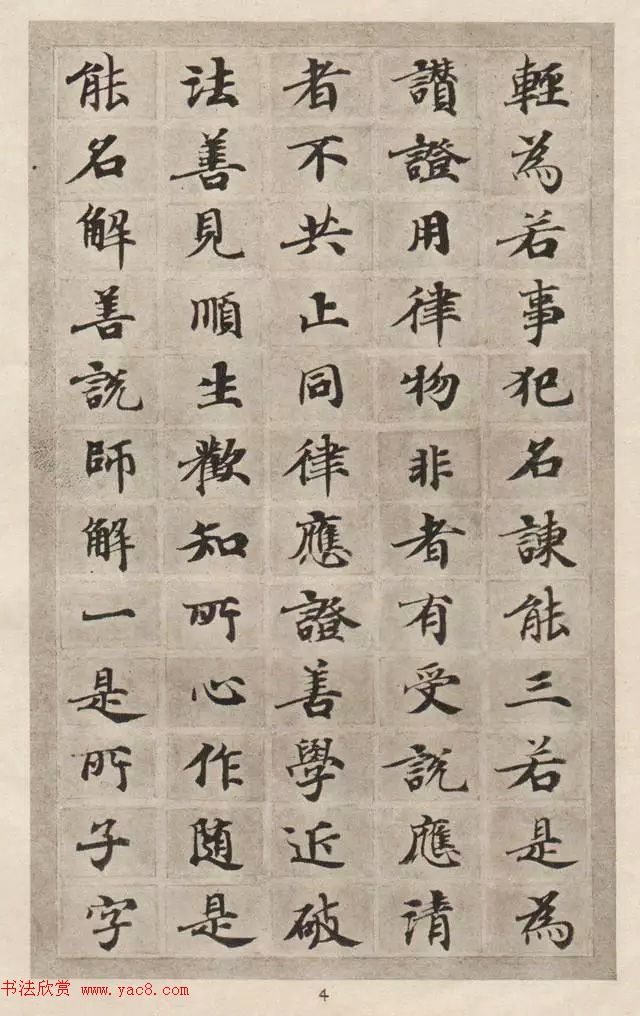 輕為若事犯名諫能三若是為
讃證用律物非者有受説應請
者不共止同律應證善學近破
法善見順生歡知所心作随是
能名解善說師解一是所子字
4
书法欣赏 www.yac8.com